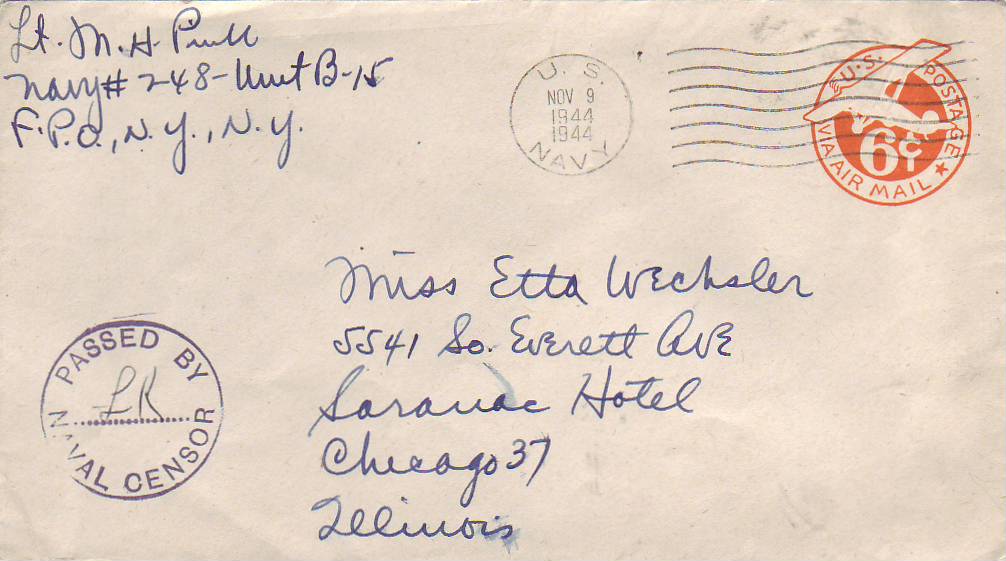 Lt. M. H.
Navy# 248-Unit B-15
F.P.O., N.Y., N.Y.
U. S.
NOV 9
1944
1944
NAVY
U.S. POSTAGE
6¢
VIA AIR MAIL
Miss Etta Wechsler
5541 So. Everett AvE
Saranac Hotel
Chicago 37
Illinois
PASSED BY
LK
NAVAL CENSOR